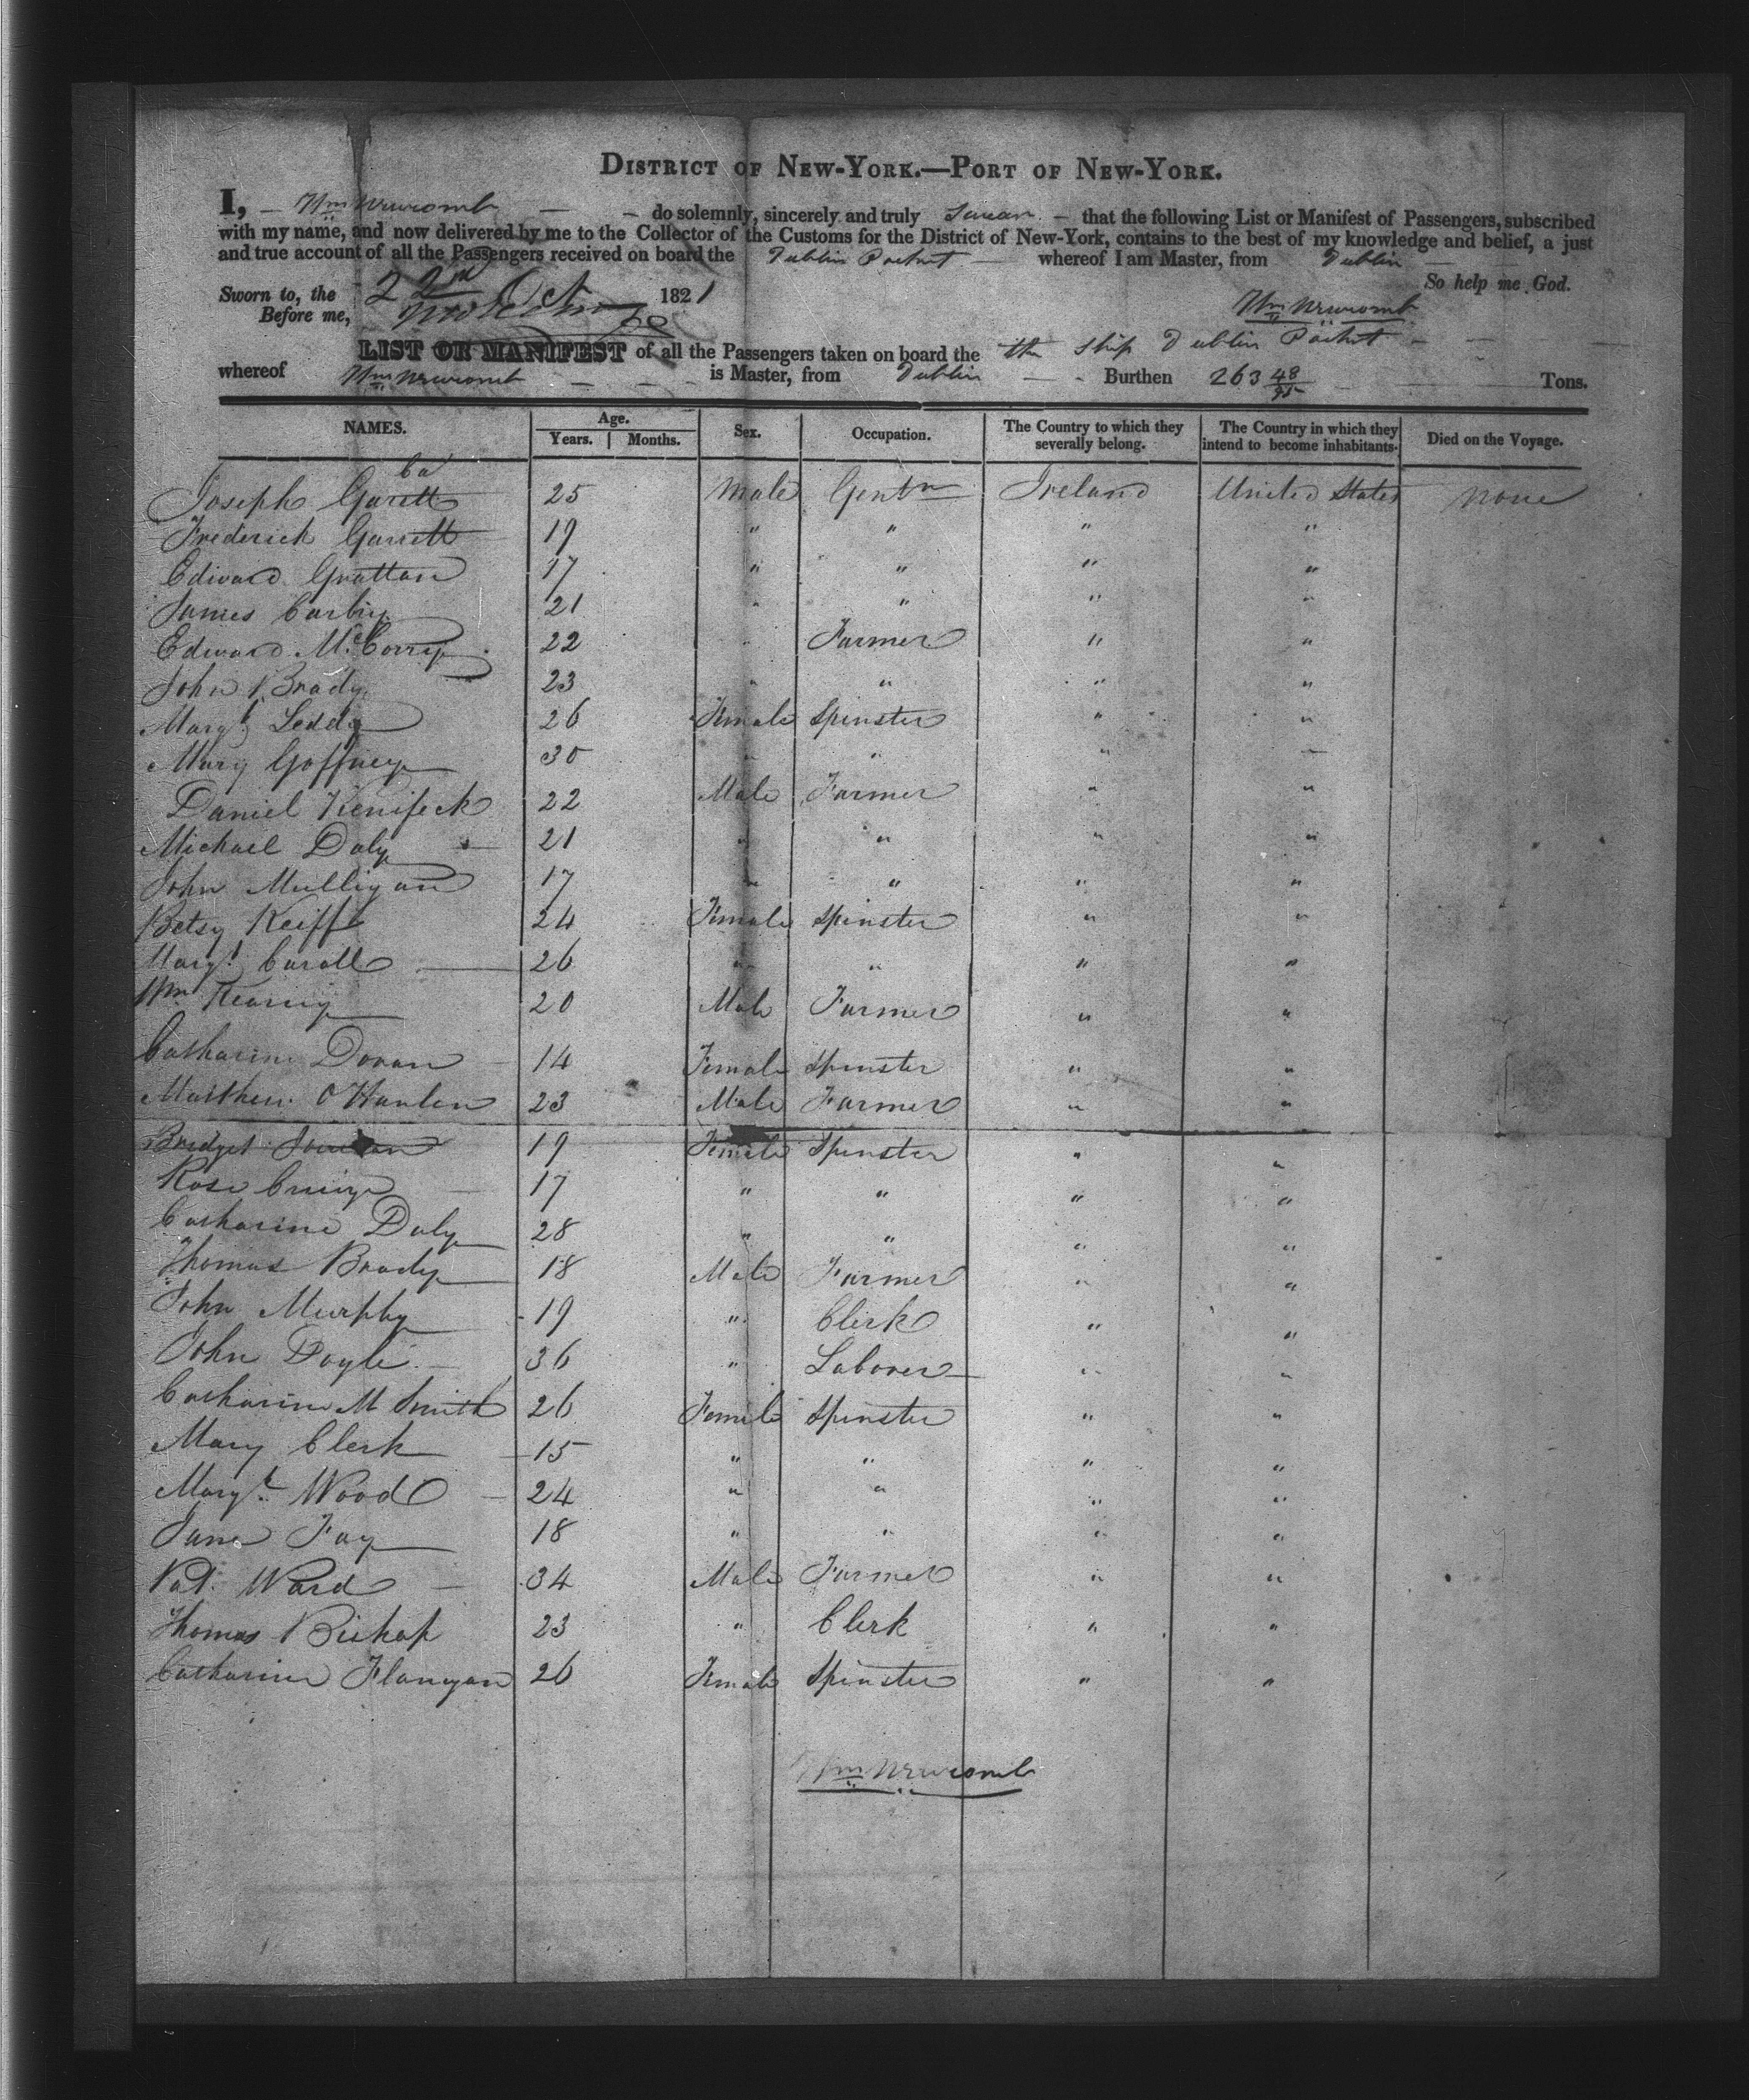 DISTRICT OF NEW-YORK.—PORT OF NEW-YORK.
I, — Wm Newcomb — — do solemnly, sincerely and truly Swear — that the following List or Manifest of Passengers, subscribed
with my name, and now delivered by me to the Collector of the Customs for the District of New-York, contains to the best of my knowledge and belief, a just
and true account of all the Passengers received on board the Dublin Packet — whereof I am Master, from Dublin
So help me God.
Sworn to, the 22nd Oct 1821
Before me,
Wm Newcomb
LIST OR MANIFEST of all the Passengers taken on board the the Ship Dublin Packet — —
whereof Wm Newcomb — — — is Master, from Dublin — - Burthen 263 48/95 — — Tons.
NAMES. Age. Years. Months. Sex. Occupation. The Country to which they severally belong. The Country in which they intend to become inhabitants. Died on the Voyage.
Joseph Garett 25 Male Gentn Ireland United States none
Frederick Garrett 19 " " " "
Edward Grattan 17 " " " "
James Carbry 21 " " " "
Edward McCorry 22 " Farmer " "
John Brady 23 " " " "
Margt Leddy 26 Female Spinster " "
Mary Gaffney 30 " " " "
Daniel Kenifeck 22 Male Farmer " "
Michael Daly 21 " " " "
John Mulligan 17 " " " "
Betsy Keiffe 24 Female Spinster " "
Margt Caroll 26 " " " "
Wm Kearny 20 Male Farmer " "
Catharine Doran 14 Female Spinster " "
Matthew O'Hanlen 23 Male Farmer " "
Bridget 19 Female Spinster " "
Rose 17 " " " "
Catharine Daly 28 " " " "
Thomas Brady 18 Male Farmer " "
John Murphy 19 " Clerk " "
John Doyle 36 " Laborer " "
Catharine M Smith 26 Female Spinster " "
Mary Clerk 15 " " " "
Margt Wood 24 " " " "
Jane Fay 18 " " " "
Pat. Ward 34 Male Farmer " "
Thomas Bishop 23 " Clerk " "
Catharine Flanigan 26 Female Spinster " "
Wm Newcomb